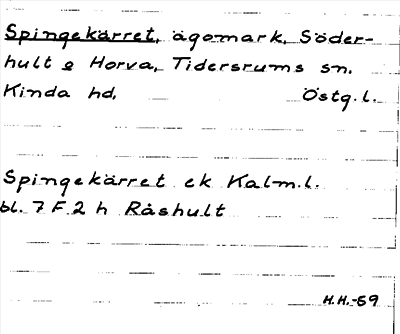 Spingekärret, ägomark, Söder-
hult o Horva, Tidersrums sn.
Kinda hd, Östg.l.
Spingekärret ek Kalm.l.
bl. 7 F 2 h Råshult
H.H.-59